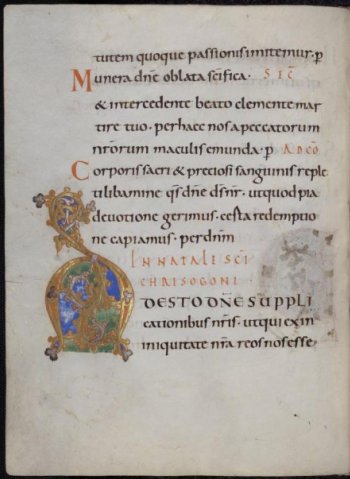 tutem quoque passionis imitemur· p
Munera dñe oblata sc̄ifica· S I C̄
& intercedente beato clemente mar
tire tuo· per haec nos a peccatorum
nr̄orum maculis emunda· p AD CŌ
Corporis sacri & preciosi sanguinis reple
ti libamine qs̄ dñe dsñr̄· ut quod pia
deuotione gerimus· certa redemptio
ne capiamus· per dñm
IN NATALE SC̄I
CHRISOGONI·
ADESTO DÑE SUPPLI
cationibus nr̄is· ut qui ex in
iniquitate nr̄a reos nos esse